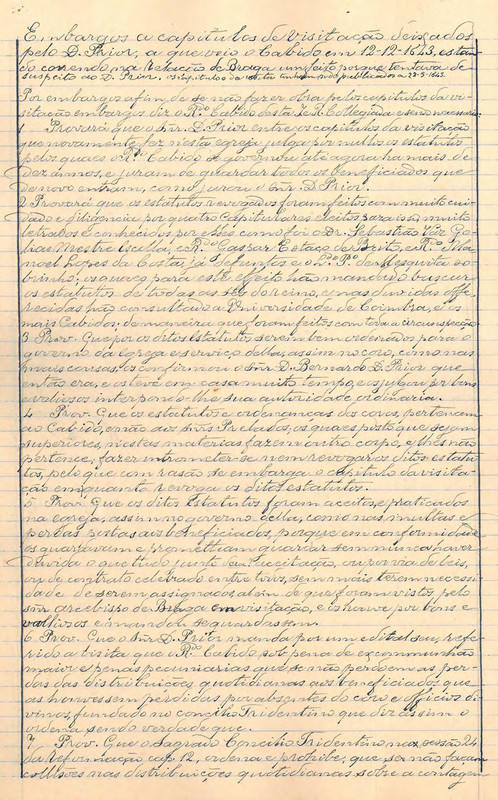 Embargos a capitulos de visitação deixados
pelo D. Prior, a que veio o Cabido em 12-12-1643, estan-
do correndo na Relação de Braga um feito porque tentava de
suspeito ao D. Prior. Os capitulos da visita tinham sido publicados a 22-9-1643.
Por embargos afim de se não fazer obra pelos capitulos da vi-
sitação embargos diz o R.do Cabido desta I. e R. Collegiada e sendo necessario:
1 Provará que o snr. D. Prior entre os capitulos da visitação
que novamente fez nesta egreja julga por nullos os estatutos
pelos quaes o R.do Cabido se governou até agora ha mais de
dez annos, e juram de guardar todos os beneficiados que
de novo entram, como jurou o snr. D. Prior.
2 Provará que os estatutos revogados foram feitos com muito cui-
dado e diligencia por quatro Capitulares eleitos para isso, muito
letrados e conhecidos por esses como foi o Dr. Sebastião Vaz
Mestre Escolla, e R.do Gaspar Estaço de Brito, e R.do Ma-
noel Lopes da Costa, já defuntos e o R.do de Mesquita so-
brinho; os quaes para este effeito hão mandado buscar
os estatutos de todas as Sés do reino, e nas duvidas offe-
recidas hão consultado a Universidade de Coimbra, e os
mais Cabidos; de maneira que foram feitos com toda a circunspecção
3 Prov. Que por os ditos Estatutos serem bem ordenados para o
governo da Egreja e serviço della, assim no coro, como nas
mais cousas, os confirmou o Snr. D. Bernardo D. Prior que
então era, e os teve em casa muito tempo, e os julgou por bons
e valiosos interpondo-lhe sua autoridade ordinaria.
4 Prov. Que os estatutos e ordenanças dos coros, pertencem
ao Cabido, e não aos snrs Prelados, os quaes posto que sejam
superiores, nestas materias fazem outro corpo, e lhes não
pertence, fazer intrometer-se nem revogar os ditos estatu-
tos, pelo que com rasão se embarga o capitulo da visita-
ção emquanto revoga os ditos estatutos.
5 Prov. Que os ditos Estatutos foram aceitos, e praticados
na egreja, assim no governo della, como nas multas e
perdas postas aos beneficiados, porque em conformidade
os guardavam e promettiam guardar sem nunca haver
duvida o que tudo ou por via de leis,
ou de contrato celebrado entre todos, sem mais terem necessi-
dade de serem assignados alem de que foram vistos pelo
snr arcebispo de Braga em visitação, e os houve por bons e
valliosos e mandou se guardassem.
6 Prov. Que o Snr. D. Prior manda por um edital seu, refe-
rido a visita que o R.do Cabido sob pena de excommunhão
maior e penas pecuniarias que se não perdoem as per-
das das distribuições quotidianas aos beneficiados que
as houvessem perdidas por absentes do coro e officios di-
vinos, fundado no concilio Tridentino que diz assim o
ordena sendo verdade que.
7 Prov. Que o Sagrado Concilio Tridentino na sessão 24
da Reformação cap. 12, ordena e prohibe, que se não façam
collusões nas distribuições quotidianas sobre a contagem